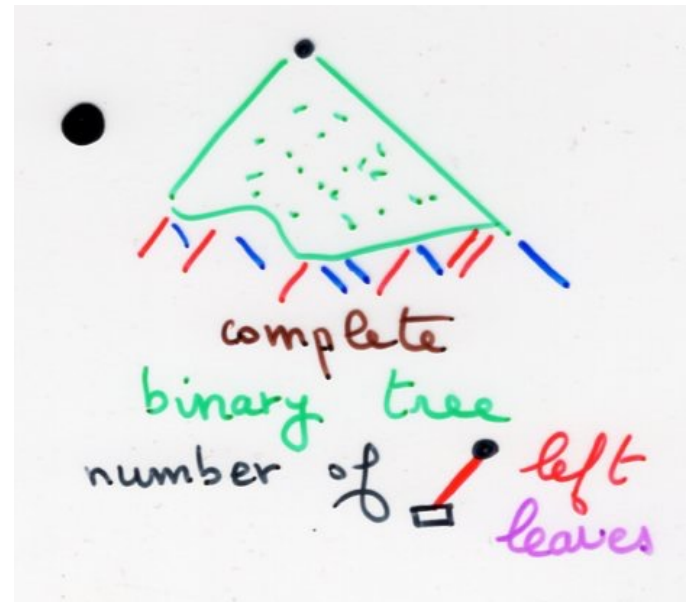 complete
binary tree
number of left
leaves